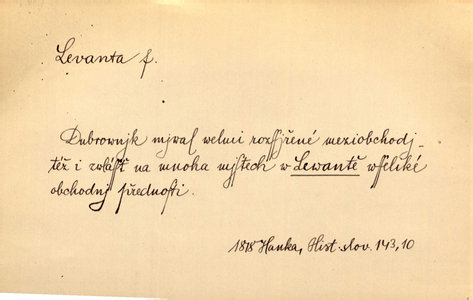 Levanta f.
Dubrownjk mjwal welmi rozssjřené meziobchodj-
též i zwlásstˇ na mnoha mjstech w Lewantě wsseliké
obchodnj přednosti.
1818 Hanka, Hist. slov. 143,10